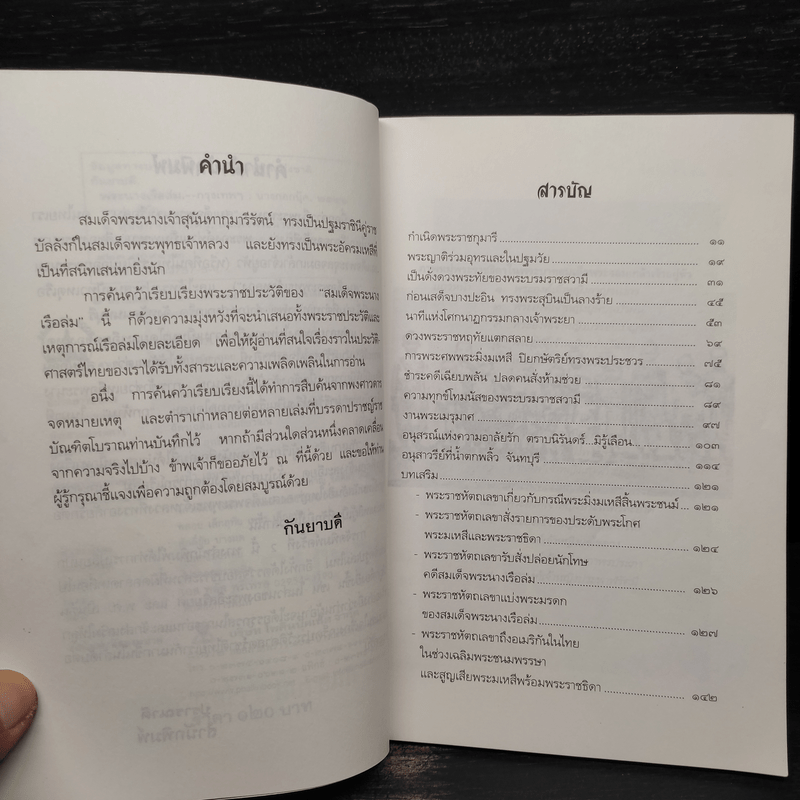 คำนำ
สมเด็จพระนางเจ้าสุนันทากุมารีรัตน์ ทรงเป็นปฐมราชินีคู่ราช
บัลลังก์ในสมเด็จพระพุทธเจ้าหลวง และยังทรงเป็นพระอัครมเหสีที่
เป็นที่สนิทเสน่หายิ่งนัก
การค้นคว้าเรียบเรียงพระราชประวัติของ "สมเด็จพระนาง
เรือล่ม" นี้ ก็ด้วยความมุ่งหวังที่จะนำเสนอทั้งพระราชประวัติและ
เหตุการณ์เรือล่มโดยละเอียด เพื่อให้ผู้อ่านที่สนใจเรื่องราวในประวัติ
ศาสตร์ไทยของเราได้รับทั้งสาระและความเพลิดเพลินในการอ่าน
อนึ่ง การค้นคว้าเรียบเรียงนี้ได้ทำการสืบค้นจากพงศาวดาร
จดหมายเหตุ และตำราเก่าหลายต่อหลายเล่มที่บรรดาปราชญ์ราช
บัณฑิตโบราณท่านบันทึกไว้ หากถ้ามีส่วนใดส่วนหนึ่งคลาดเคลื่อน
จากความจริงไปบ้าง ข้าพเจ้าก็ขออภัยไว้ ณ ที่นี้ด้วย และขอให้ท่าน
ผู้รู้กรุณาชี้แจงเพื่อความถูกต้องโดยสมบูรณ์ด้วย
กันยาบดี
สารบัญ
กำเนิดพระราชกุมารี ๑๑
พระญาติร่วมอุทรและในปฐมวัย ๑๙
เป็นดั่งดวงพระทัยของพระบรมราชสวามี ๓๑
ก่อนเสด็จบางปะอิน ทรงพระสุบินเป็นลางร้าย ๔๕
นาทีแห่งโศกนาฏกรรมกลางเจ้าพระยา ๕๓
ดวงพระราชหฤทัยแตกสลาย ๖๙
การพระศพพระมิ่งมเหสี ปิยกษัตริย์ทรงพระประชวร ๗๕
ชำระคดีเฉียบพลัน ปลดคนสั่งห้ามช่วย ๘๑
ความทุกข์โทมนัสของพระบรมราชสวามี ๘๙
งานพระเมรุมาศ ๙๗
อนุสรณ์แห่งความอาลัยรัก ตราบนิรันดร์...มิรู้เลือน ๑๐๓
อนุสาวรีย์ที่น้ำตกพลิ้ว จันทบุรี ๑๑๔
บทเสริม ๑๒๑
- พระราชหัตถเลขาเกี่ยวกับกรณีพระมิ่งมเหสีสิ้นพระชนม์ ๑๒๑
- พระราชหัตถเลขาสั่งรายการของประดับพระโกศ
พระมเหสีและพระราชธิดา ๑๒๔
- พระราชหัตถเลขารับสั่งปล่อยนักโทษ
คดีสมเด็จพระนางเรือล่ม ๑๒๖
- พระราชหัตถเลขาแบ่งพระมรดก
ของสมเด็จพระนางเรือล่ม ๑๒๗
- พระราชหัตถเลขาถึงอเมริกันในไทย
ในช่วงเฉลิมพระชนมพรรษา
และสูญเสียพระมเหสีพร้อมพระราชธิดา ๑๔๒